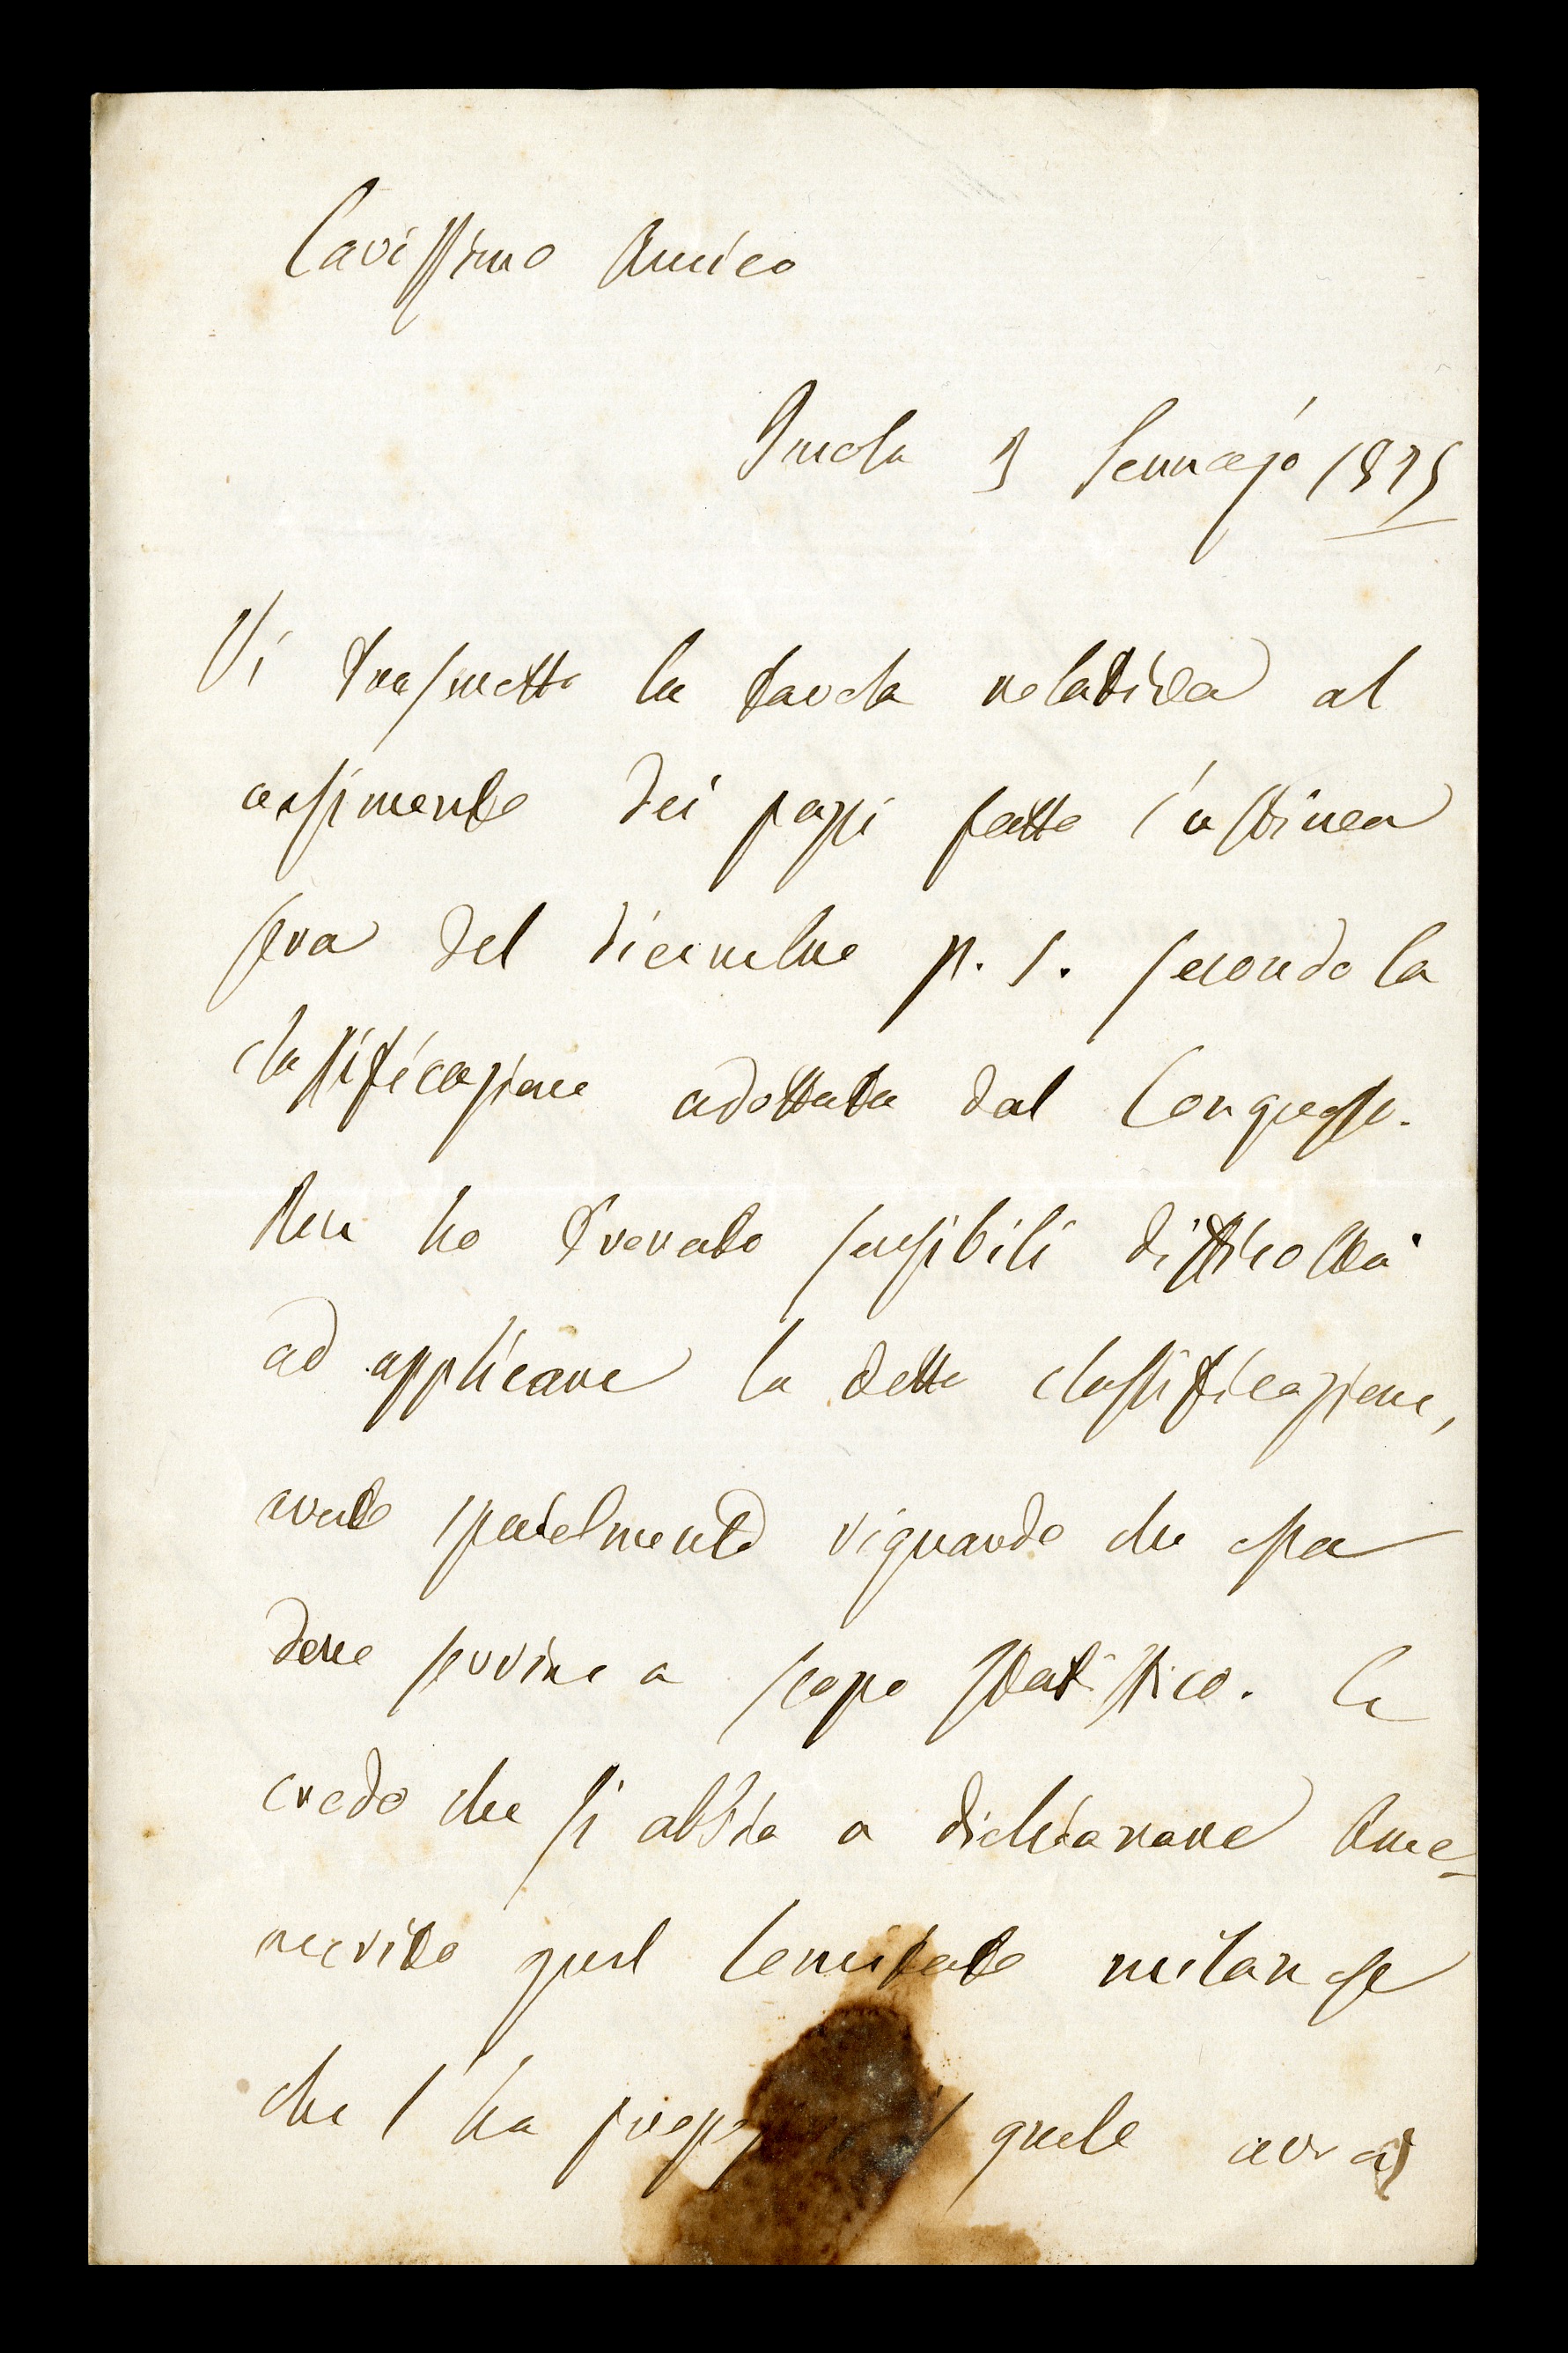 Carissimo Amico
Imola 3 Gennajo 1875
Vi trasmetto la tavola relativa al
censimento dei pazzi fatto l'ultima
sera del dicembre p. s. secondo la
classificazione adottata dal Congresso.
Non ho trovato sensibili difficoltà
ad applicare la detta classificazione,
avuto specialmente riguardo che essa
deve servire a scopo statistico. Io
credo che si abbia a dichiarare bene-
merito quel Comitato milanese
che l'ha quale avrà